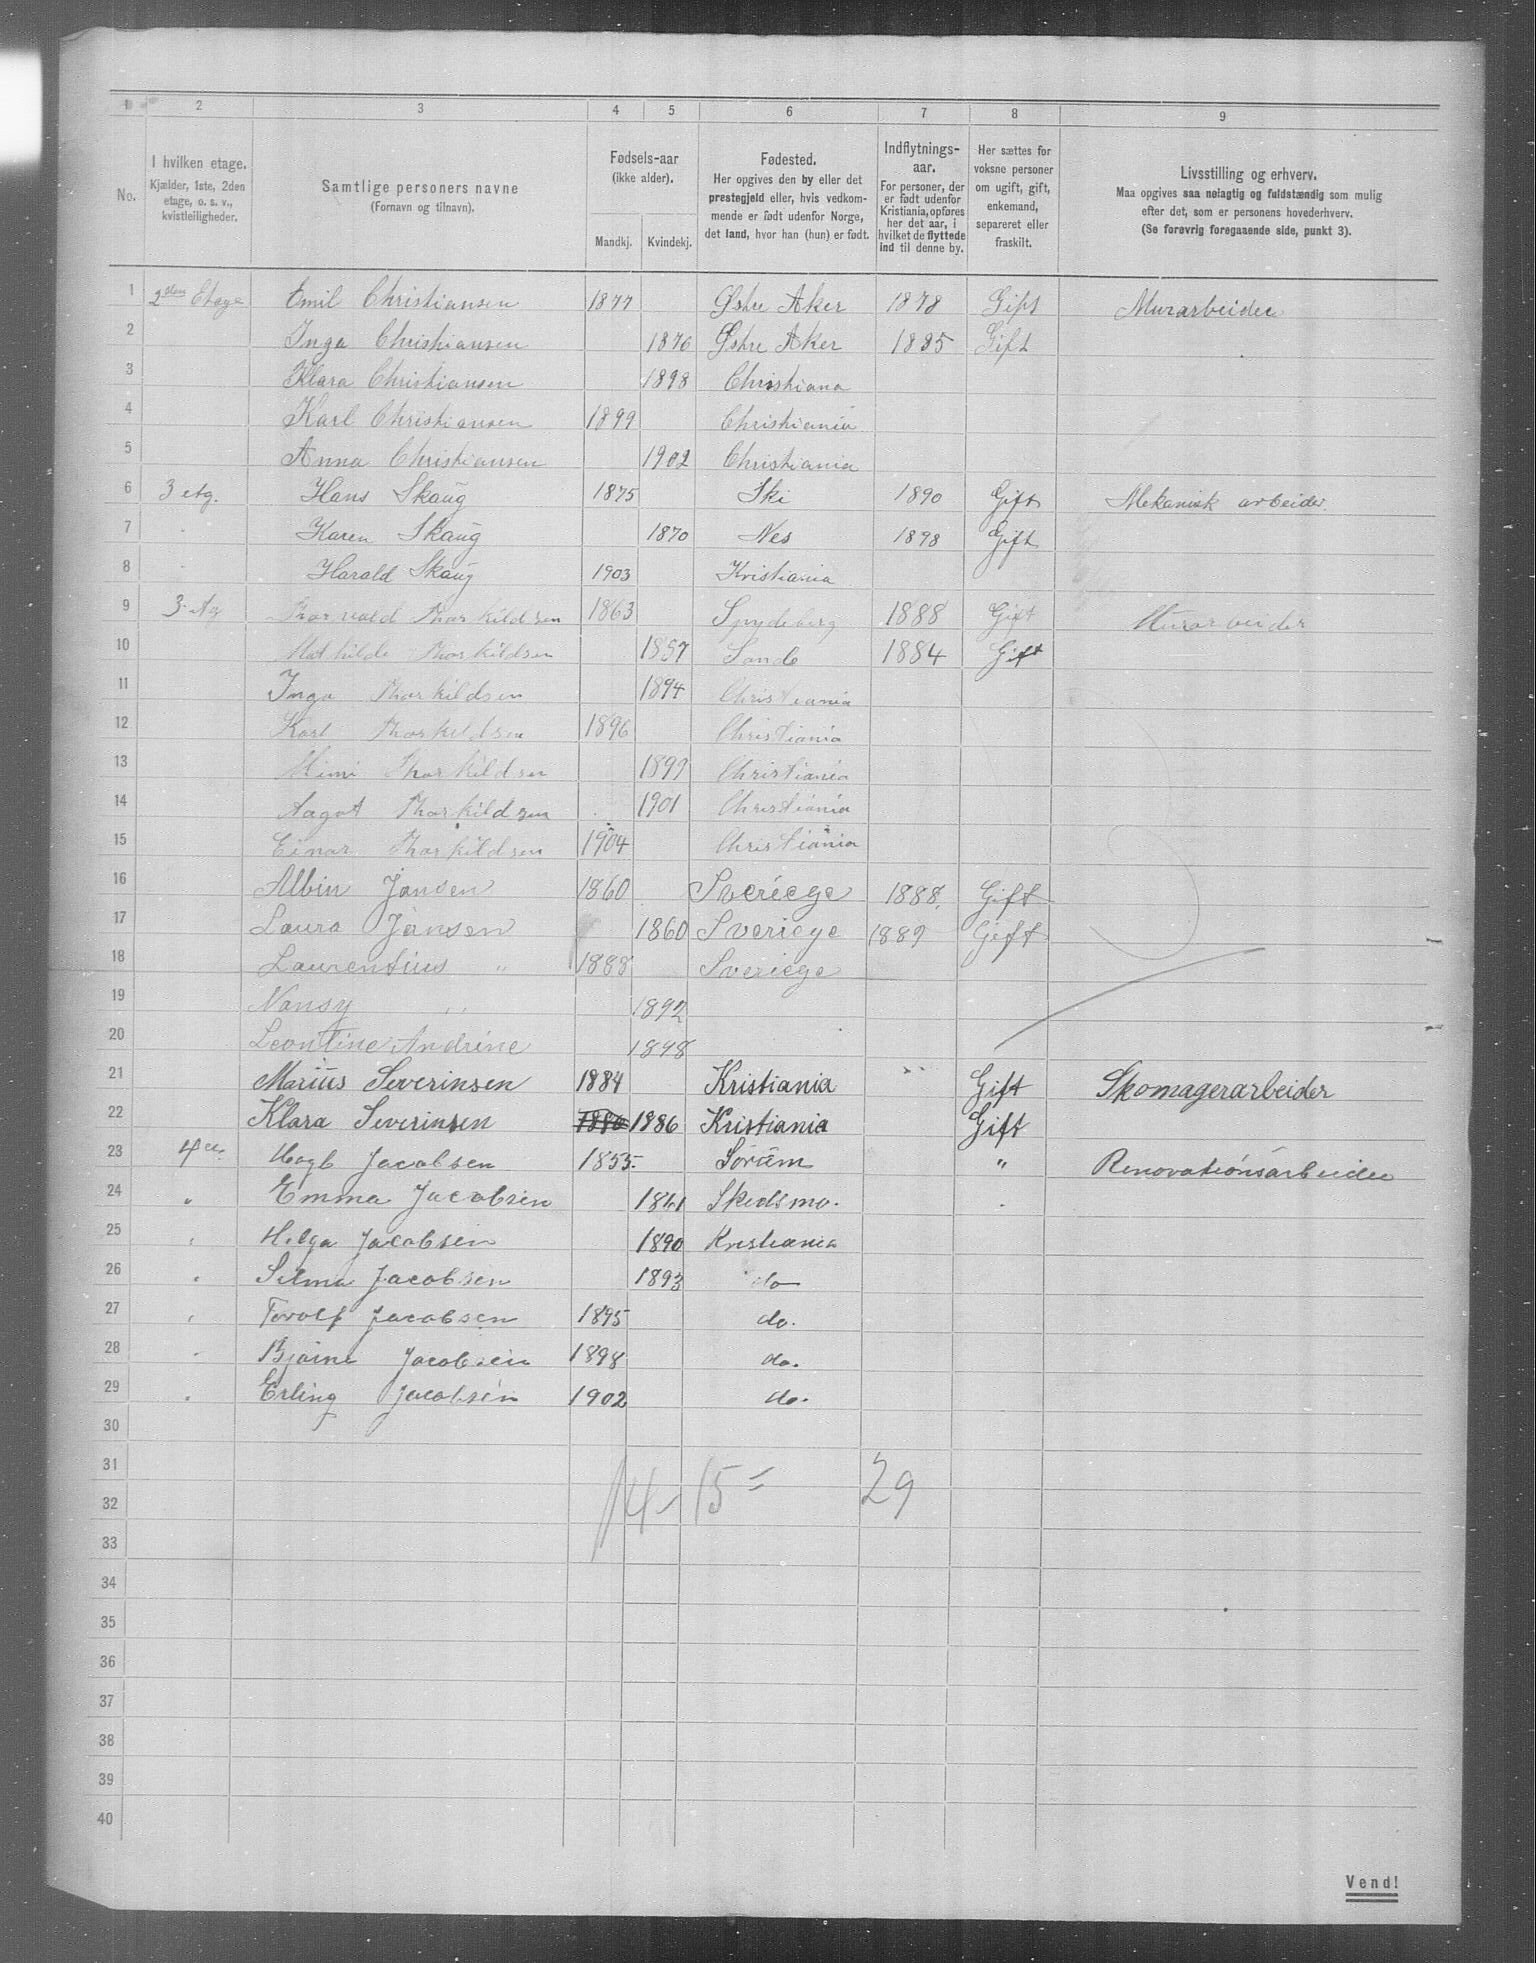 1 2 3 4 5 6 7 8 9
No. I hvilken etage. Kjælder, 1ste, 2den etage, o. s. v., kvistleiligheder. Samtlige personers navne (Fornavn og tilnavn). Fødsels-aar (ikke alder). Mandkj. Kvindekj. Fødested. Her opgives den by eller det prestegjeld eller, hvis vedkommende er født udenfor Norge, det land, hvor han (hun) er født. Indflytnings-aar. For personer, der er født udenfor Kristiania, opføres her det aar, i hvilket de flyttede ind til denne by. Her sættes for voksne personer om ugift, gift, enkemand, separeret eller fraskilt. Livsstilling og erhverv. Maa opgives saa nøiagtig og fuldstændig som mulig efter det, som er personens hovederhverv. (Se forøvrig foregaaende side, punkt 3).
1 2den Etage Emil Christiansen 1877 Østre Aker 1878 Gift Murarbeider
2 Inga Christiansen 1876 Østre Aker 1885 Gift
3 Klara Christiansen 1898 Christiana
4 Karl Christiansen 1899 Christiania
5 Anna Christiansen 1902 Christiania
6 3 etg. Hans Skaug 1875 Ski 1890 Gift Mekanisk arbeider.
7 Karen Skaug 1870 Nes 1898 Gift
8 Harald Skaug 1903 Kristiania
9 3 Thorvald Thorkildsen 1863 Spydeberg 1888 Gift Murarbeider
10 Mathilde Thorkildsen 1857 Sande 1884 Gift
11 Inga Thorkildsen 1894 Christiania
12 Karl Thorkildsen 1896 Christiania
13 Mimi Thorkildsen 1899 Christiania
14 Aagot Thorkildsen 1901 Christiania
15 Einar Thorkildsen 1904 Christiania
16 Albin Jansen 1860 Sveriege 1888. Gift
17 Laura Jansen 1860 Sveriege 1889 Gift
18 Laurentius " 1888 Sveriege
19 Nansy " 1892
20 Leontine Andrine 1898
21 Marius Severinsen 1884 Kristiania Gift Skomagerarbeider
22 Klara Severinsen 1886 1886 Kristiania Gift
23 Jacobsen 1855. Sørum " Renovationsarbeider
24 " Emma Jacobsen 1861 Skedsmo.
25 Helga Jacobsen 1890 Kristiania
26 Selma Jacobsen 1893 do
27 Torolf Jacobsen 1895 do.
28 Bjarne Jacobsen 1898 do.
29 Erling Jacobsen 1902 do.
30
31
32 14 - 15 = 29
33
34
35
36
37
38
39
40
Vend!